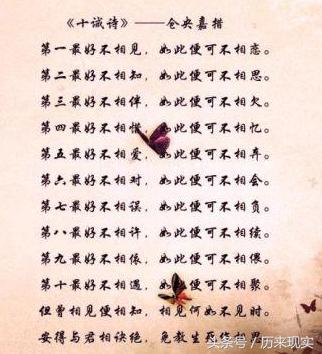 《十诫诗》——仓央嘉措
第一最好不相见，如此便可不相恋。
第二最好不相知，如此便可不相思。
第三最好不相伴，如此便可不相欠。
第四最好不相惜，如此便可不相忆。
第五最好不相爱，如此便可不相弃。
第六最好不相对，如此便可不相会。
第七最好不相误，如此便可不相负。
第八最好不相许，如此便可不相续。
第九最好不相依，如此便可不相偎。
第十最好不相遇，如此便可不相聚。
但曾相见便相知，相见何如不见时。
安得与君相诀绝，免教生死作相思。
头条号/历来现实